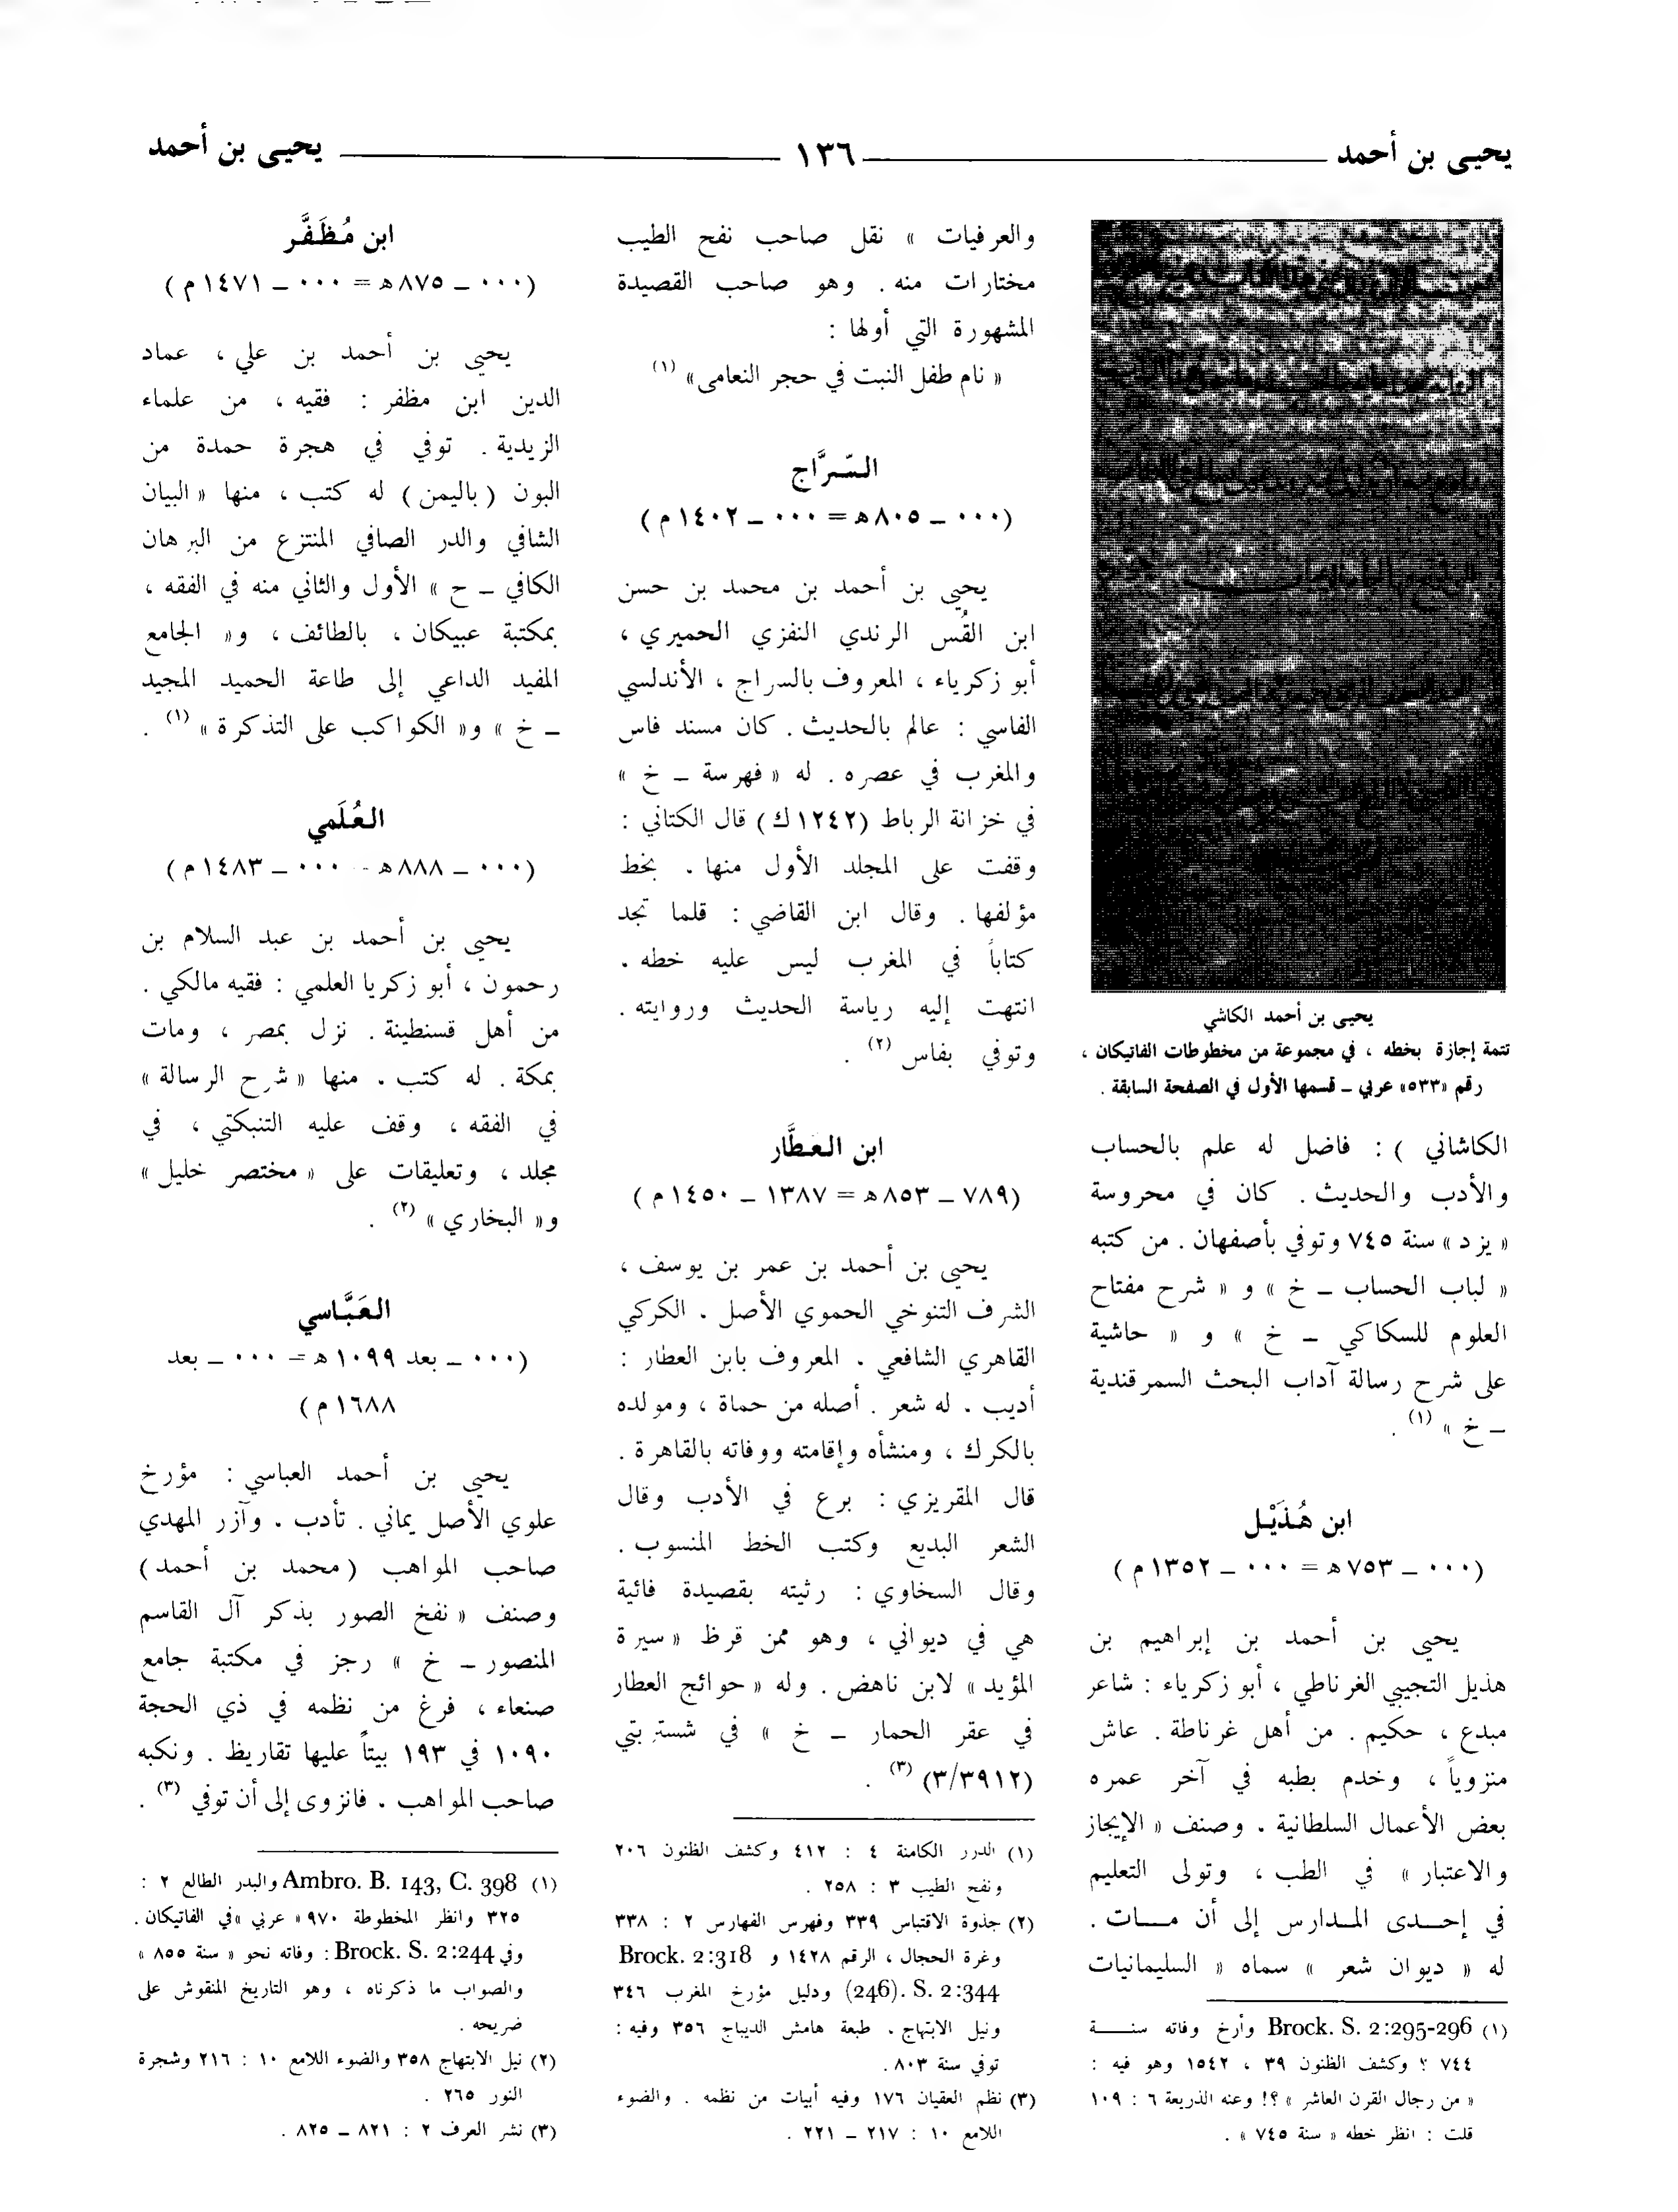 يحيى بن أحمد ١٣٦ يحيى بن أحمد
يحيى بن أحمد الكاشي
تتمة إجازة بخطه ، في مجموعة من مخطوطات الفاتيكان ،
رقم «٥٣٣» عربي ــ قسمها الأول في الصفحة السابقة .
الكاشاني ) : فاضل له علم بالحساب
والأدب والحديث . كان في محروسة
« يزد » سنة ٧٤٥ وتوفي بأصفهان . من كتبه
« لباب الحساب ــ خ » و « شرح مفتاح
العلوم للسكاكي ــ خ » و « حاشية
على شرح رسالة آداب البحث السمرقندية
ــ خ » (١) .
ابن هُذَيْل
(٠٠٠ ــ ٧٥٣ هـ = ٠٠٠ ــ ١٣٥٢ م)
يحيى بن أحمد بن إبراهيم بن
هذيل التجيبي الغرناطي ، أبو زكرياء : شاعر
مبدع ، حكيم . من أهل غرناطة . عاش
منزوياً ، وخدم بطبه في آخر عمره
بعض الأعمال السلطانية . وصنف « الإيجاز
والاعتبار » في الطب ، وتولى التعليم
في إحدى المدارس إلى أن مات .
له « ديوان شعر » سماه « السليمانيات
(١) Brock. S. 2:295-296 وأرخ وفاته سنة
٧٤٤ ؟ وكشف الظنون ٣٩ ، ١٥٤٢ وهو فيه :
« من رجال القرن العاشر » ؟! وعنه الذريعة ٦ : ١٠٩
قلت : انظر خطه « سنة ٧٤٥ » .
والعرفيات » نقل صاحب نفح الطيب
مختارات منه . وهو صاحب القصيدة
المشهورة التي أولها :
« نام طفل النبت في حجر النعامى» (١)
السّرَّاج
(٠٠٠ ــ ٨٠٥ هـ = ٠٠٠ ــ ١٤٠٢ م)
يحيى بن أحمد بن محمد بن حسن
ابن القُس الرندي النفزي الحميري ،
أبو زكرياء ، المعروف بالسراج ، الأندلسي
الفاسي : عالم بالحديث . كان مسند فاس
والمغرب في عصره . له « فهرسة ــ خ »
في خزانة الرباط (١٢٤٢ ك) قال الكتاني :
وقفت على المجلد الأول منها . بخط
مؤلفها . وقال ابن القاضي : قلما تجد
كتاباً في المغرب ليس عليه خطه .
انتهت إليه رياسة الحديث وروايته .
وتوفي بفاس (٢) .
ابن العطَّار
(٧٨٩ ــ ٨٥٣ هـ = ١٣٨٧ ــ ١٤٥٠ م)
يحيى بن أحمد بن عمر بن يوسف ،
الشرف التنوخي الحموي الأصل . الكركي
القاهري الشافعي . المعروف بابن العطار :
أديب . له شعر . أصله من حماة ، ومولده
بالكرك ، ومنشأه وإقامته ووفاته بالقاهرة .
قال المقريزي : برع في الأدب وقال
الشعر البديع وكتب الخط المنسوب .
وقال السخاوي : رثيته بقصيدة فائية
هي في ديواني ، وهو ممن قرظ « سيرة
المؤيد » لابن ناهض . وله « حوائج العطار
في عقر الحمار ــ خ » في شستربتي
(٣/٣٩١٢) (٣) .
(١) الدرر الكامنة ٤ : ٤١٢ وكشف الظنون ٢٠٦
ونفح الطيب ٣ : ٢٥٨ .
(٢) جذوة الاقتباس ٣٣٩ وفهرس الفهارس ٢ : ٣٣٨
وغرة الحجال ، الرقم ١٤٢٨ و Brock. 2:318
(246). S. 2:344 ودليل مؤرخ المغرب ٣٤٦
ونيل الابتهاج . طبعة هامش الديباج ٣٥٦ وفيه :
توفي سنة ٨٠٣ .
(٣) نظم العقيان ١٧٦ وفيه أبيات من نظمه . والضوء
اللامع ١٠ : ٢١٧ ــ ٢٢١ .
ابن مُظَفَّر
(٠٠٠ ــ ٨٧٥ هـ = ٠٠٠ ــ ١٤٧١ م)
يحيى بن أحمد بن علي ، عماد
الدين ابن مظفر : فقيه ، من علماء
الزيدية . توفي في هجرة حمدة من
البون (باليمن) له كتب ، منها « البيان
الشافي والدر الصافي المنتزع من البرهان
الكافي ــ ح » الأول والثاني منه في الفقه ،
بمكتبة عبيكان ، بالطائف ، و« الجامع
المفيد الداعي إلى طاعة الحميد المجيد
ــ خ » و« الكواكب على التذكرة » (١) .
العُلَمي
(٠٠٠ ــ ٨٨٨ هـ - ٠٠٠ ــ ١٤٨٣ م)
يحيى بن أحمد بن عبد السلام بن
رحمون ، أبو زكريا العلمي : فقيه مالكي .
من أهل قسنطينة . نزل بمصر ، ومات
بمكة . له كتب . منها « شرح الرسالة »
في الفقه ، وقف عليه التنبكتي ، في
مجلد ، وتعليقات على « مختصر خليل »
و« البخاري » (٢) .
العَبَّاسي
(٠٠٠ ــ بعد ١٠٩٩ هـ = ٠٠٠ ــ بعد
١٦٨٨ م)
يحيى بن أحمد العباسي : مؤرخ
علوي الأصل يماني . تأدب . وآزر المهدي
صاحب المواهب (محمد بن أحمد)
وصنف « نفخ الصور بذكر آل القاسم
المنصور ــ خ » رجز في مكتبة جامع
صنعاء ، فرغ من نظمه في ذي الحجة
١٠٩٠ في ١٩٣ بيتاً عليها تقاريظ . ونكبه
صاحب المواهب . فانزوى إلى أن توفي (٣) .
(١) Ambro. B. 143, C. 398 والبدر الطالع ٢ :
٣٢٥ وانظر المخطوطة ٩٧٠ « عربي » في الفاتيكان .
وفي Brock. S. 2:244 : وفاته نحو « سنة ٨٥٥ »
والصواب ما ذكرناه ، وهو التاريخ المنقوش على
ضريحه .
(٢) نيل الابتهاج ٣٥٨ والضوء اللامع ١٠ : ٢١٦ وشجرة
النور ٢٦٥ .
(٣) نشر العرف ٢ : ٨٢١ ــ ٨٢٥ .